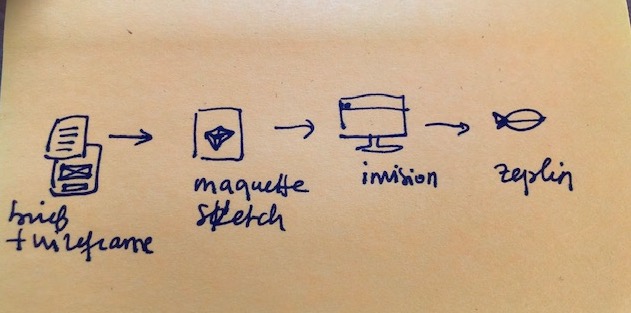 brief
+ wireframe
maquette
sketch
invision
zeplin